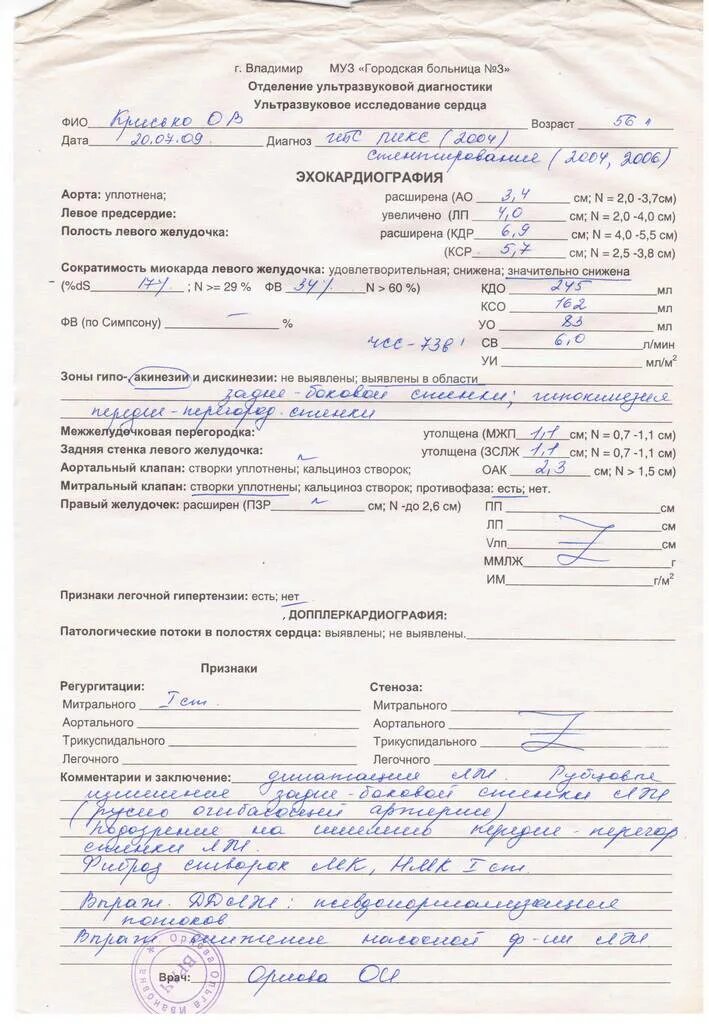 г. Владимир МУЗ «Городская больница №3»
Отделение ультразвуковой диагностики
Ультразвуковое исследование сердца
ФИО Крисько О В Возраст 56 л
Дата 20.07.09 Диагноз ИБС ПИКС (2004)
стентирование (2004, 2006)
ЭХОКАРДИОГРАФИЯ
Аорта: уплотнена; расширена (АО 3,4 см; N = 2,0 -3,7см)
Левое предсердие: увеличено (ЛП 4,0 см; N = 2,0 -4,0 см)
Полость левого желудочка: расширена (КДР 6,9 см; N = 4,0 -5,5 см)
(КСР 5,7 см; N = 2,5 -3,8 см)
Сократимость миокарда левого желудочка: удовлетворительная; снижена; значительно снижена
(%dS 17% ; N >= 29 % ФВ 34% N > 60 %) КДО 245 мл
КСО 162 мл
ФВ (по Симпсону) – % УО 83 мл
ЧСС-73в' СВ 6,0 л/мин
УИ мл/м²
Зоны гипо-, акинезии и дискинезии: не выявлены; выявлены в области
задне-боковой стенки; гипокинезия
передне-перегород. стенки
Межжелудочковая перегородка: утолщена (МЖП 1,1 см; N = 0,7 -1,1 см)
Задняя стенка левого желудочка: утолщена (ЗСЛЖ 1,1 см; N = 0,7 -1,1 см)
Аортальный клапан: створки уплотнены; кальциноз створок; ОАК 2,3 см; N > 1,5 см)
Митральный клапан: створки уплотнены; кальциноз створок; противофаза: есть; нет.
Правый желудочек: расширен (ПЗР ~ см; N -до 2,6 см) ПП см
ЛП см
Vлп см
ММЛЖ г
ИМ г/м²
Признаки легочной гипертензии: есть; нет
ДОППЛЕРКАРДИОГРАФИЯ:
Патологические потоки в полостях сердца: выявлены; не выявлены.
Признаки
Регургитации: Стеноза:
Митрального I ст. Митрального
Аортального Аортального
Трикуспидального Трикуспидального
Легочного Легочного
Комментарии и заключение: дилатация ЛЖ. Рубцовые
изменения задне-боковой стенки ЛЖ
(русло огибающей артерии)
Подозрение на ишемию передне-перегор.
стенки ЛЖ.
Фиброз створок МК, НМК I ст.
Выраж. ДДЛЖ: псевдонормализация
потоков
Выраж. снижение насосной ф-ии ЛЖ
Врач: Орлова ОИ
Орлова Ольга Ивановна
ВРАЧ